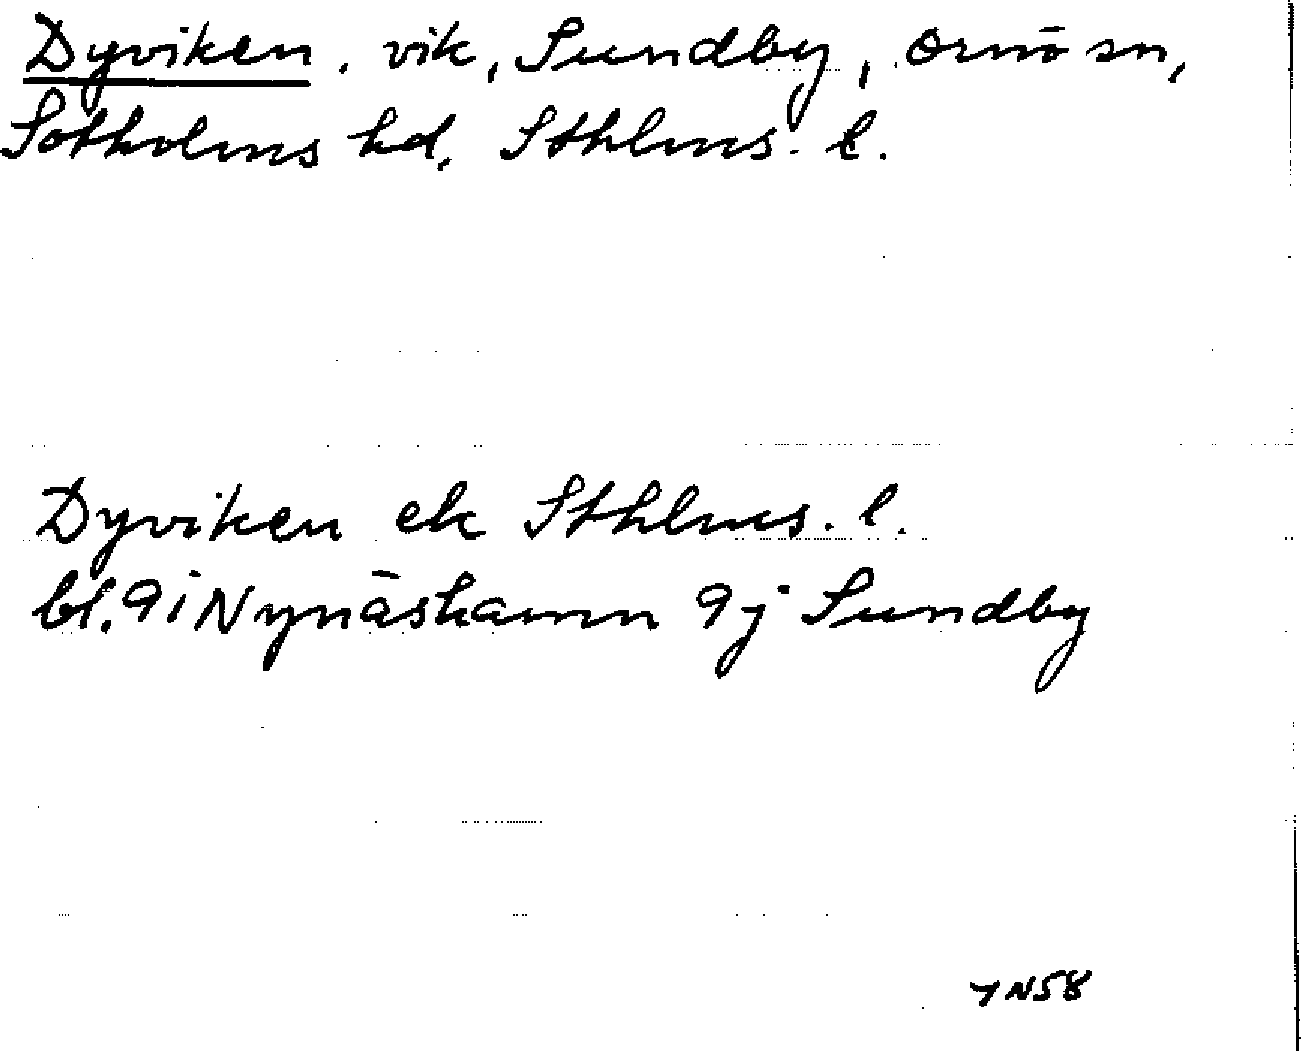 Dyviken, vik, Sundby, Ornö sn,
Sotholms hd, Sthlms. l.
Dyviken ek Sthlms. l.
bl. 9 i Nynäshamn 9j Sundby
YN58